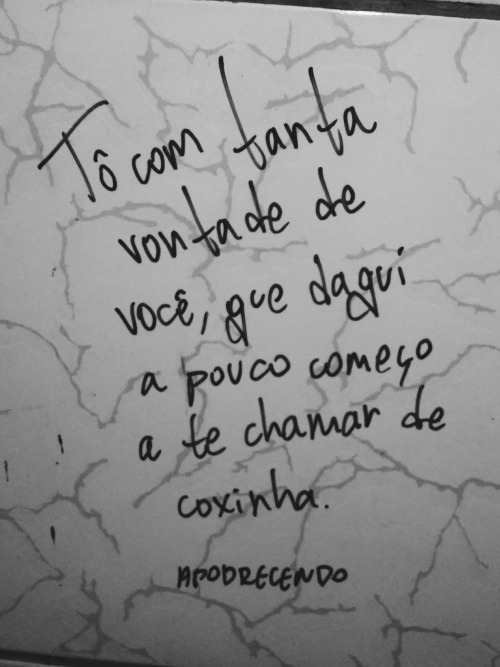 Tô com tanta
vontade de
você, que daqui
a pouco começo
a te chamar de
coxinha.
APODRECENDO